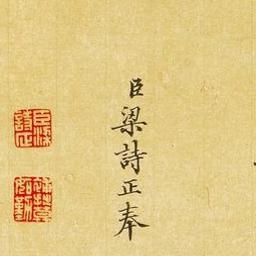 臣梁詩正奉
臣梁詩正